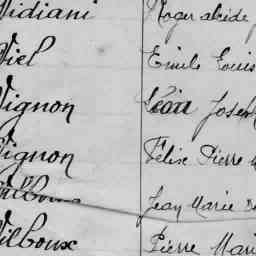 Vidiani Roger alcide
Viel Emile Louis
Vignon Léon Joseph
Vignon Félix Pierre
Vilboux Jean Marie
Vilboux Pierre Marie